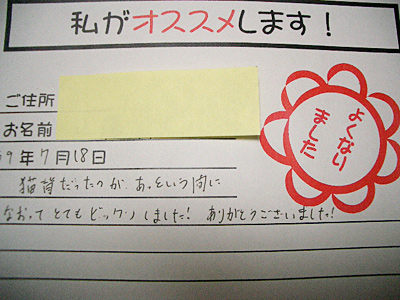 私がオススメします！
ご住所
お名前
9年7月18日
よくなり
ました
猫背だったのが、あっという間に
なおってとてもビックリしました! ありがとうございました!